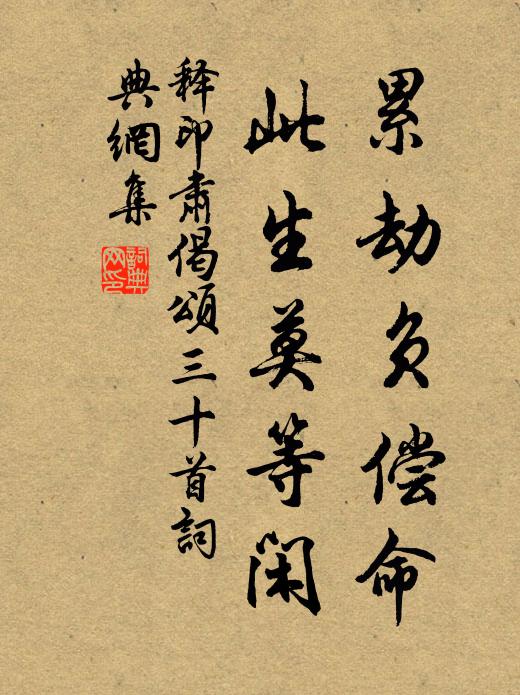 累劫负偿命
此生莫等闲
释印肃偈颂三十首詞
典網集
詞典网印